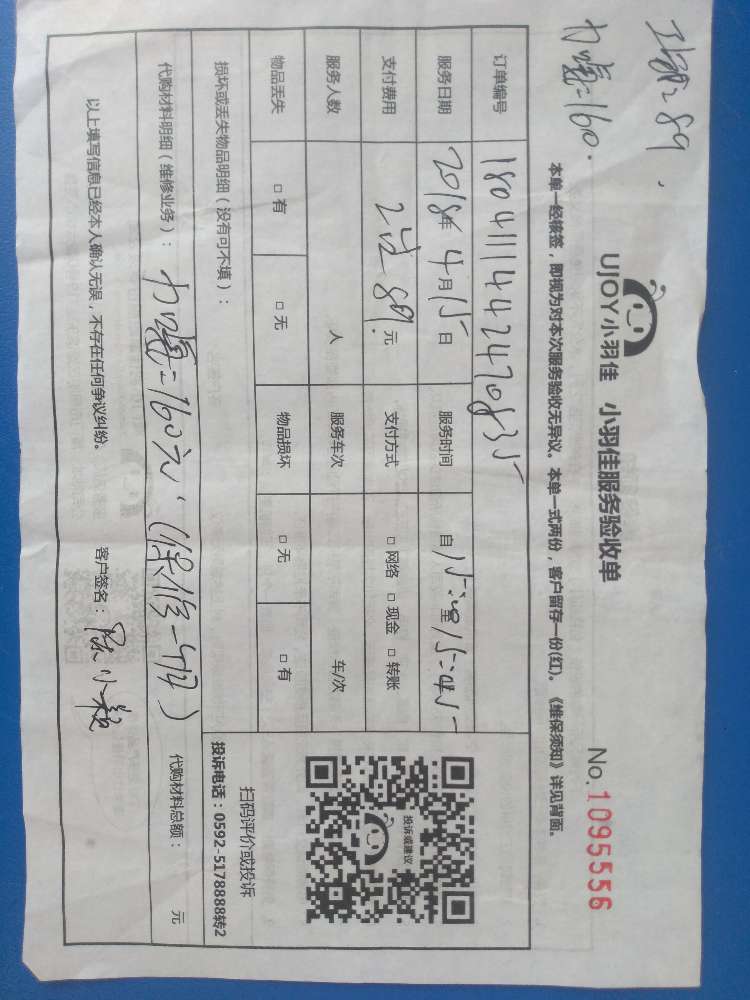 工时=89.
加氟=160.
UJOY小羽佳 小羽佳服务验收单
No.1095556
本单一经核签，即视为对本次服务验收无异议。本单一式两份，客户留存一份(红)。《维保须知》详见背面。
订单编号
服务日期 2018年4月15日 服务时间 自15:00至15:45
支付费用 89元 支付方式 □ 网络 □ 现金 □ 转账
服务人数 人 服务车次 车/次
物品丢失 □ 有 □ 无 物品损坏 □ 无 □ 有
损坏或丢失物品明细（没有可不填）：
投诉或建议
扫码评价或投诉
投诉电话：0592-5178888转2
代购材料明细（维修业务）：加氟=160元.(保修一个月)
代购材料总额： 元
以上填写信息已经本人确认无误，不存在任何争议纠纷。 客户签名：陈小毅